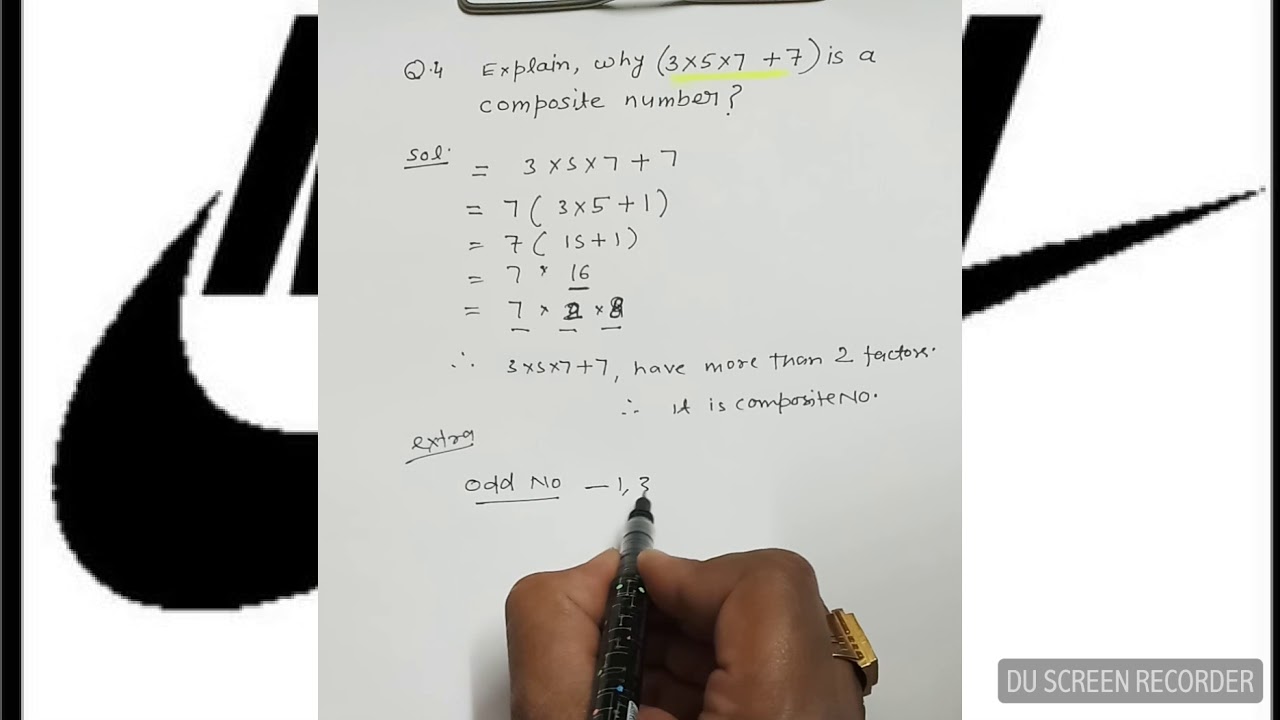 Q.4 Explain, why (3×5×7 +7) is a
composite number?
Sol. = 3×5×7+7
= 7(3×5+1)
= 7(15+1)
= 7 × 16
= 7 × 2 × 8
∴ 3×5×7+7, have more than 2 factors.
∴ It is composite No.
extra
odd No – 1, 3
DU SCREEN RECORDER